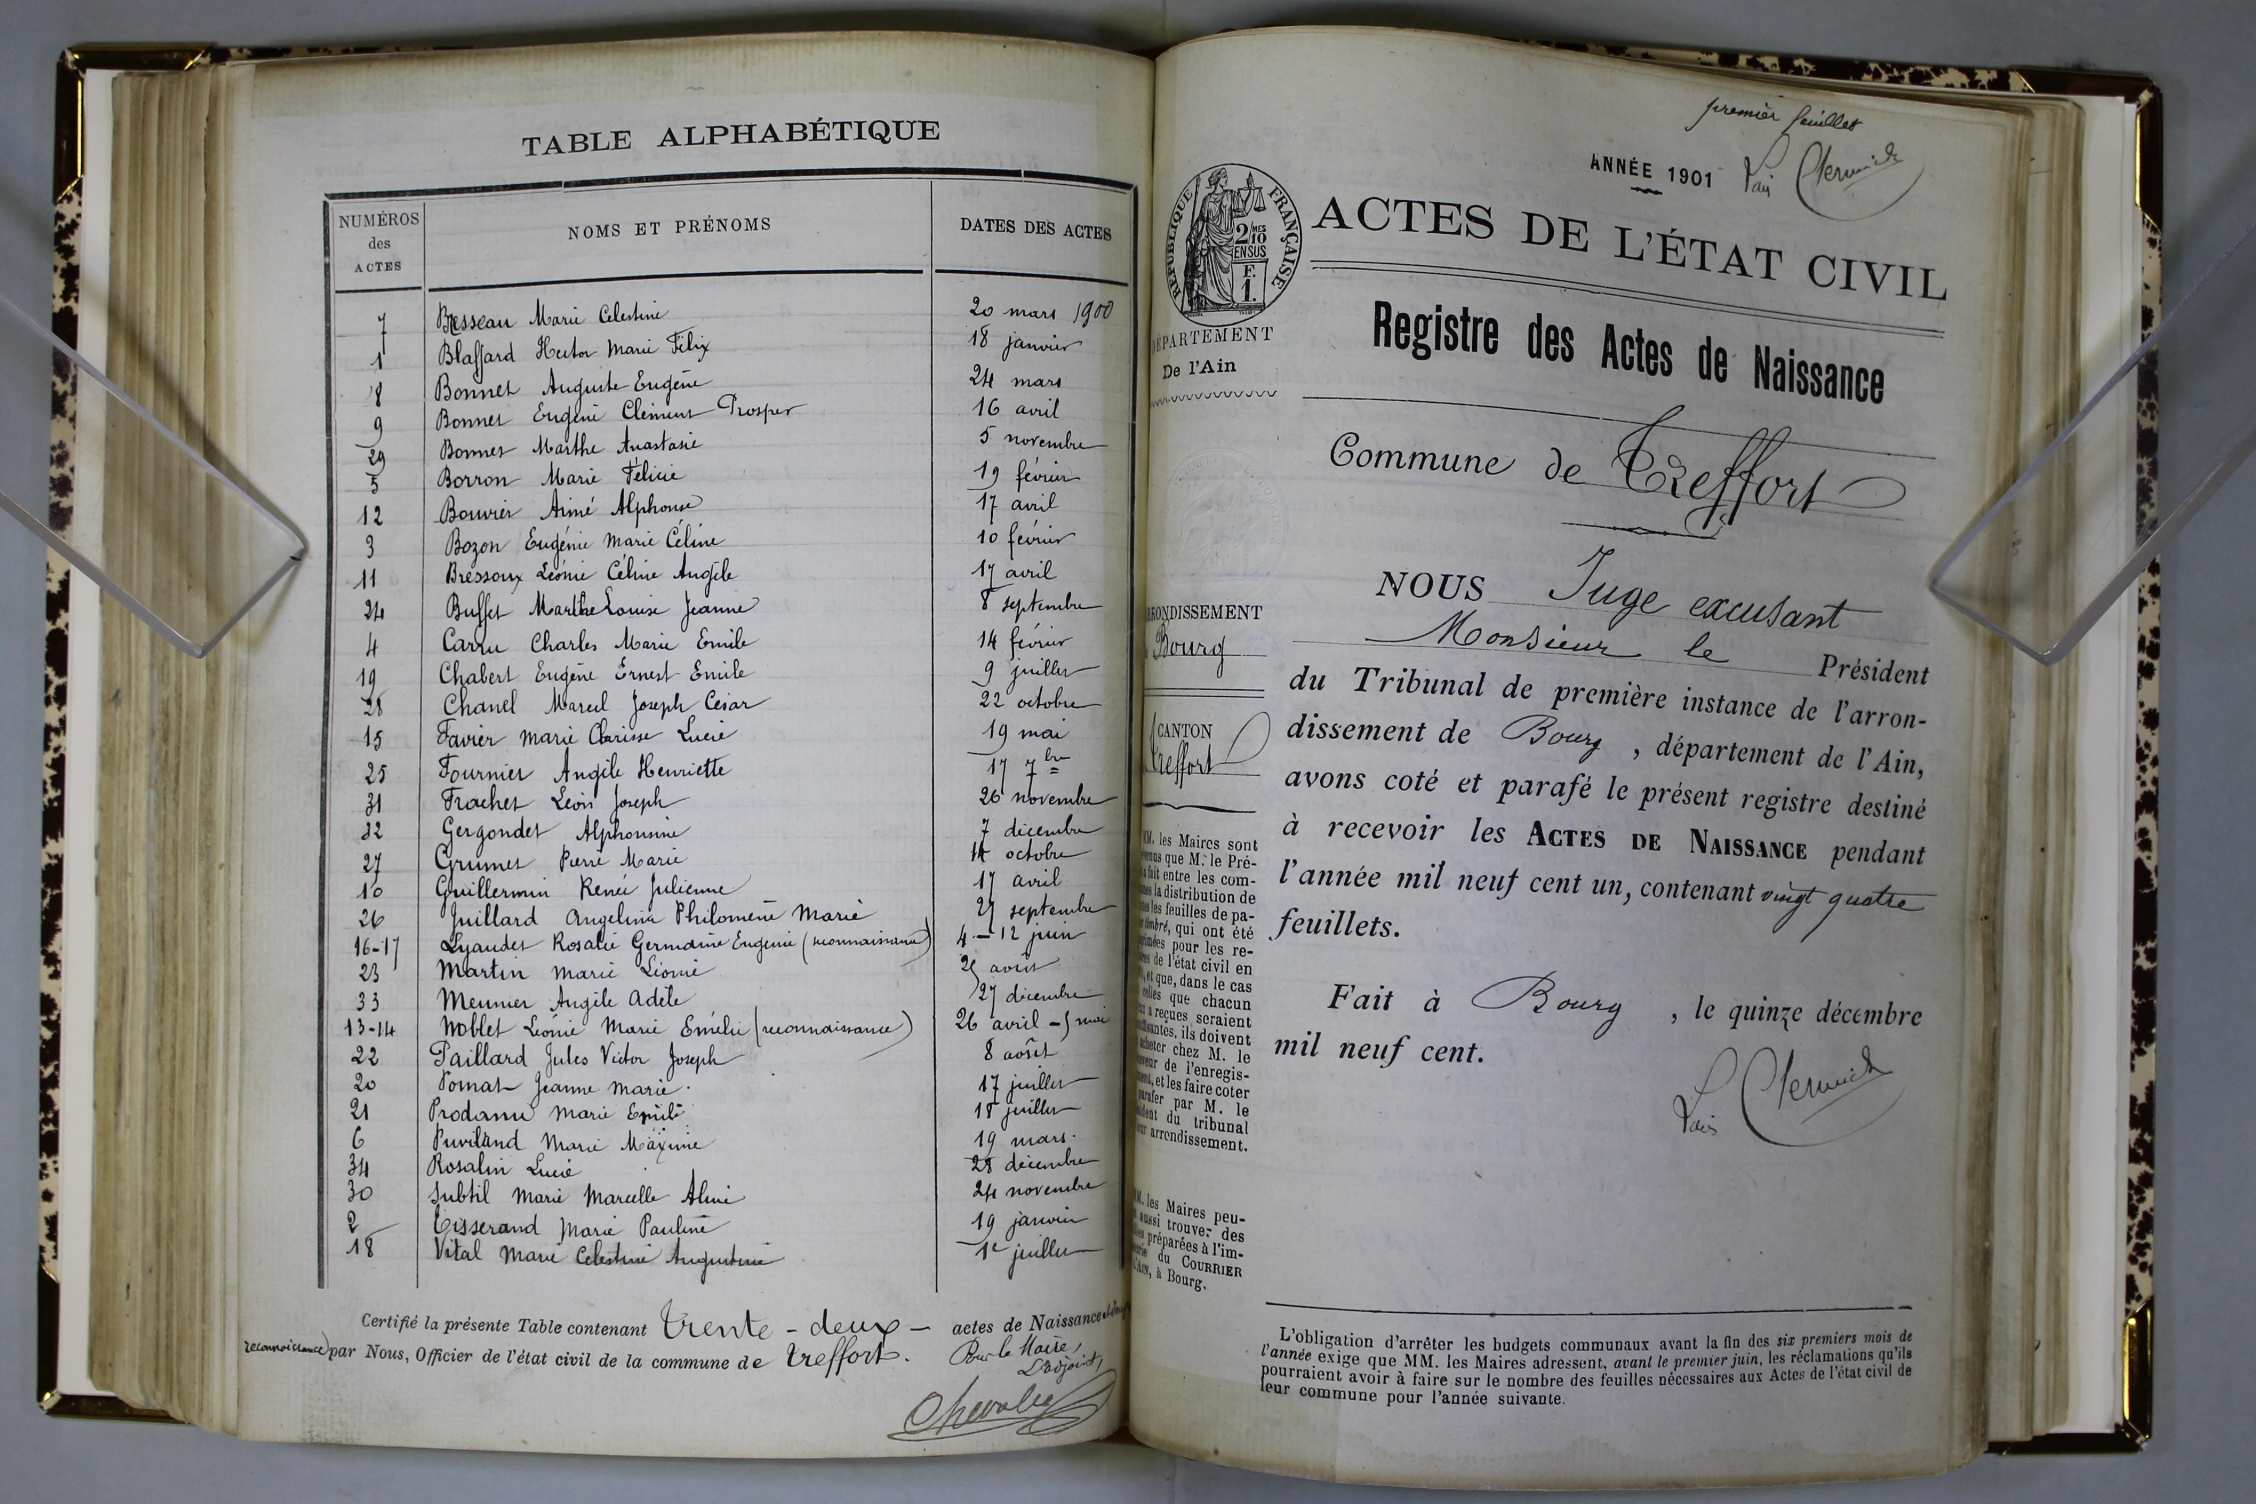 TABLE ALPHABÉTIQUE
NUMÉROS des ACTES NOMS ET PRÉNOMS DATES DES ACTES
7 Bresseau Marie Celestine 20 mars 1900
1 Blaffard Hector Marie Félix 18 janvier
8 Bonnet Auguste Eugène 24 mars
9 Bonnet Eugène Clément Prosper 16 avril
29 Bonnet Marthe Anastasie 5 novembre
5 Borron Marie Félicie 19 février
12 Bouvier Aimé Alphonse 17 avril
3 Bozon Eugénie Marie Céline 10 février
11 Bressoux Léonie Céline Angèle 17 avril
24 Buffet Marthe Louise Jeanne 8 septembre
4 Carru Charles Marie Emile 14 février
19 Chabert Eugène Ernest Emile 9 juillet
28 Chanel Marcel Joseph César 22 octobre
15 Favier Marie Clarisse Lucie 19 mai
25 Fournier Angèle Henriette 17 7bre
31 Frachet Léon Joseph 26 novembre
32 Gergondet Alphonsine 7 décembre
27 Grumet Pierre Marie octobre
10 Guillermin Renée Julienne 17 avril
26 Juillard Angelina Philomène Marie 27 septembre
16-17 Lyaudet Rosalie Germaine Eugénie (reconnaissance) 4 - 12 juin
23 Martin Marie Léonie 25 août
33 Meunier Angèle Adèle 27 décembre
13-14 Noblet Léonie Marie Emélie (reconnaissance) 26 avril - 5 mai
22 Paillard Jules Victor Joseph 8 août
20 Pomat Jeanne Marie 17 juillet
21 Prodanu Marie Emile 18 juillet
6 Puviland Marie Maxime 19 mars
34 Rosalin Lucie 28 décembre
30 Subtil Marie Marcelle Aline 24 novembre
2 Tisserand Marie Pauline 19 janvier
18 Vital Marie Celestine Augustine 1e juillet
Certifié la présente Table contenant Trente - deux - actes de Naissance
reconnaissance) par Nous, Officier de l'état civil de la commune de Treffort.
Pour le Maire,
L'adjoint,
Chevalier
premier feuillet
ANNÉE 1901
RÉPUBLIQUE FRANÇAISE
2/10 MES
EN SUS
F.
1.
ACTES DE L'ÉTAT CIVIL
DÉPARTEMENT
De l'Ain
Registre des Actes de Naissance
Commune de Treffort
ARRONDISSEMENT
Bourg
CANTON
Treffort
NOUS Juge excusant
Monsieur le Président
du Tribunal de première instance de l'arron-
dissement de Bourg, département de l'Ain,
avons coté et parafé le présent registre destiné
à recevoir les ACTES DE NAISSANCE pendant
l'année mil neuf cent un, contenant vingt quatre
feuillets.
Fait à Bourg, le quinze décembre
mil neuf cent.
MM. les Maires sont
que M. le Pré-
fait entre les com-
la distribution de
les feuilles de pa-
timbré, qui ont été
pour les re-
de l'état civil en
et que, dans le cas
celles que chacun
reçues seraient
ils doivent
acheter chez M. le
de l'enregis-
et les faire coter
parafer par M. le
du tribunal
arrondissement.
MM. les Maires peu-
aussi trouver des
préparées à l'im-
du COURRIER
L'AIN, à Bourg.
L'obligation d'arrêter les budgets communaux avant la fin des six premiers mois de
l'année exige que MM. les Maires adressent, avant le premier juin, les réclamations qu'ils
pourraient avoir à faire sur le nombre des feuilles nécessaires aux Actes de l'état civil de
leur commune pour l'année suivante.